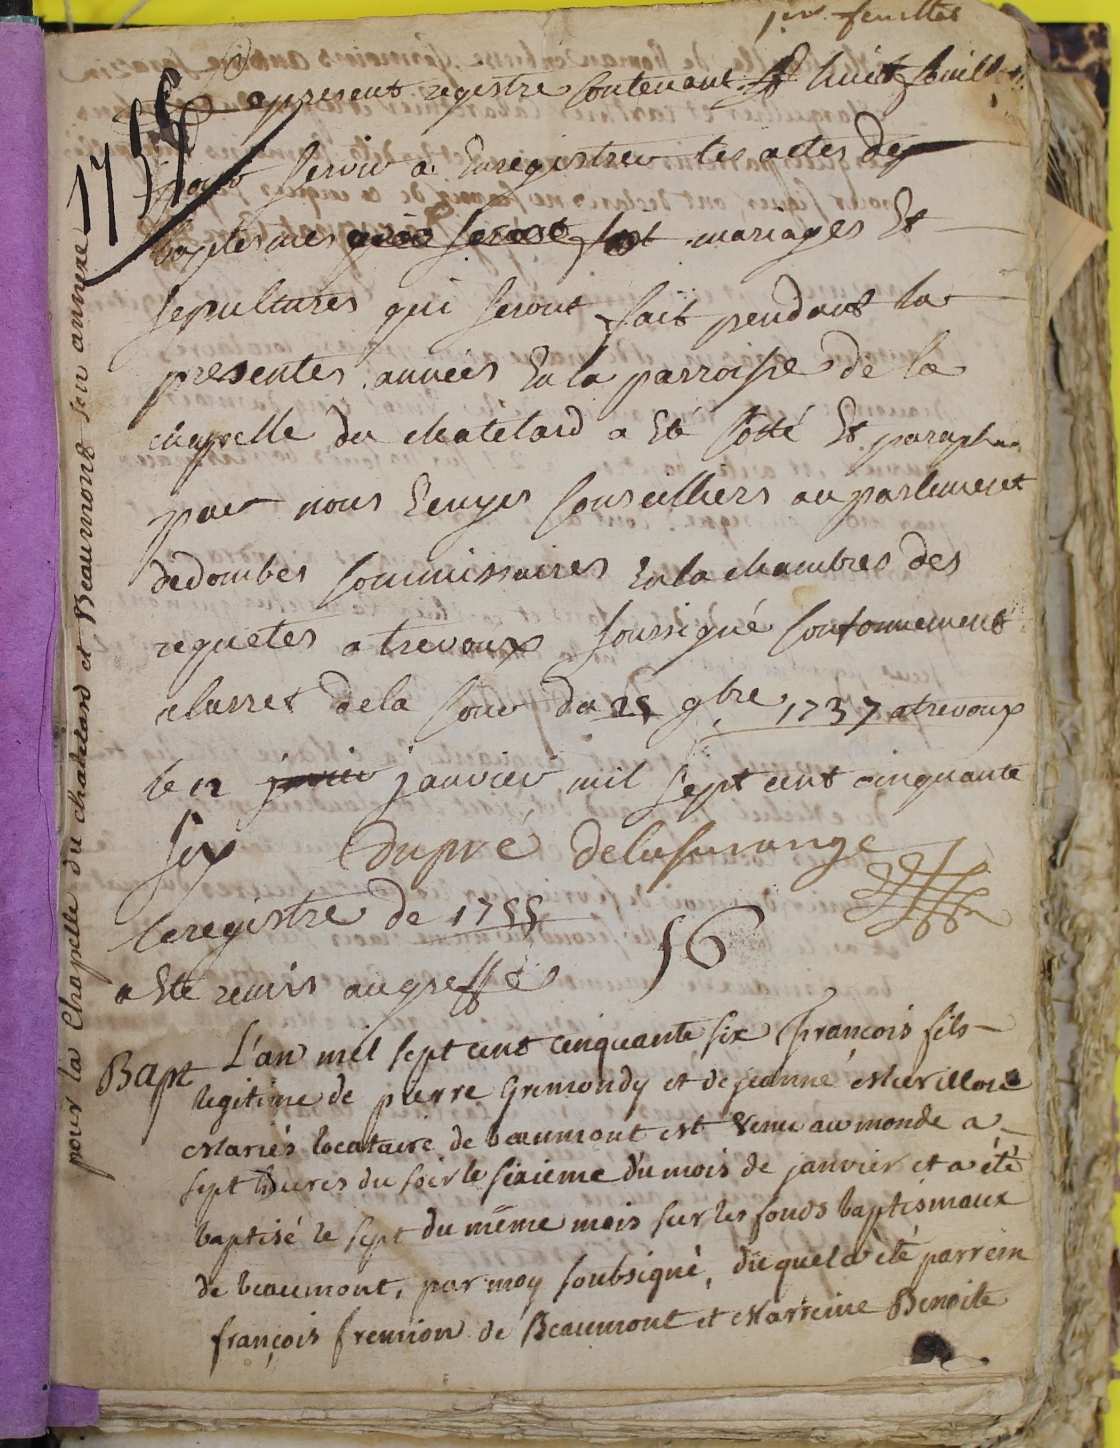 1er feuillet
1756
pour la Chapelle du chatelard et Beaumont son annexe
Le present registre Contenant huit feuillets
pour servir a Enregistrer les actes des
baptesmes qui seront fait mariages Et
sepultures qui seront fait pendant la
presentes années En la parroisse de la
chapelle du chatelard a Eté Cotté Et paraphé
par nous Conseilliers au parlement
dedombes Commissaires En la chambres des
requetes a trevoux soussigné Conformement
a larret dela Cour du 25 9bre 1737 a trevoux
le 12 janvier mil sept cent cinquante
six dupré
le registre de 1755
a Eté remis au greffe
56
Bapt L'an mil sept cent cinquante six françois fils
legitime de pierre Grimondy et de jeanne
Mariés locataire de beaumont est venu au monde a
sept heures du soir le sixieme du mois de janvier et a été
baptisé le sept du même mois sur les fonds baptismaux
de beaumont, par moy soubsigné, duquel a été parrein
françois fremion de Beaumont et Marreine Benoite